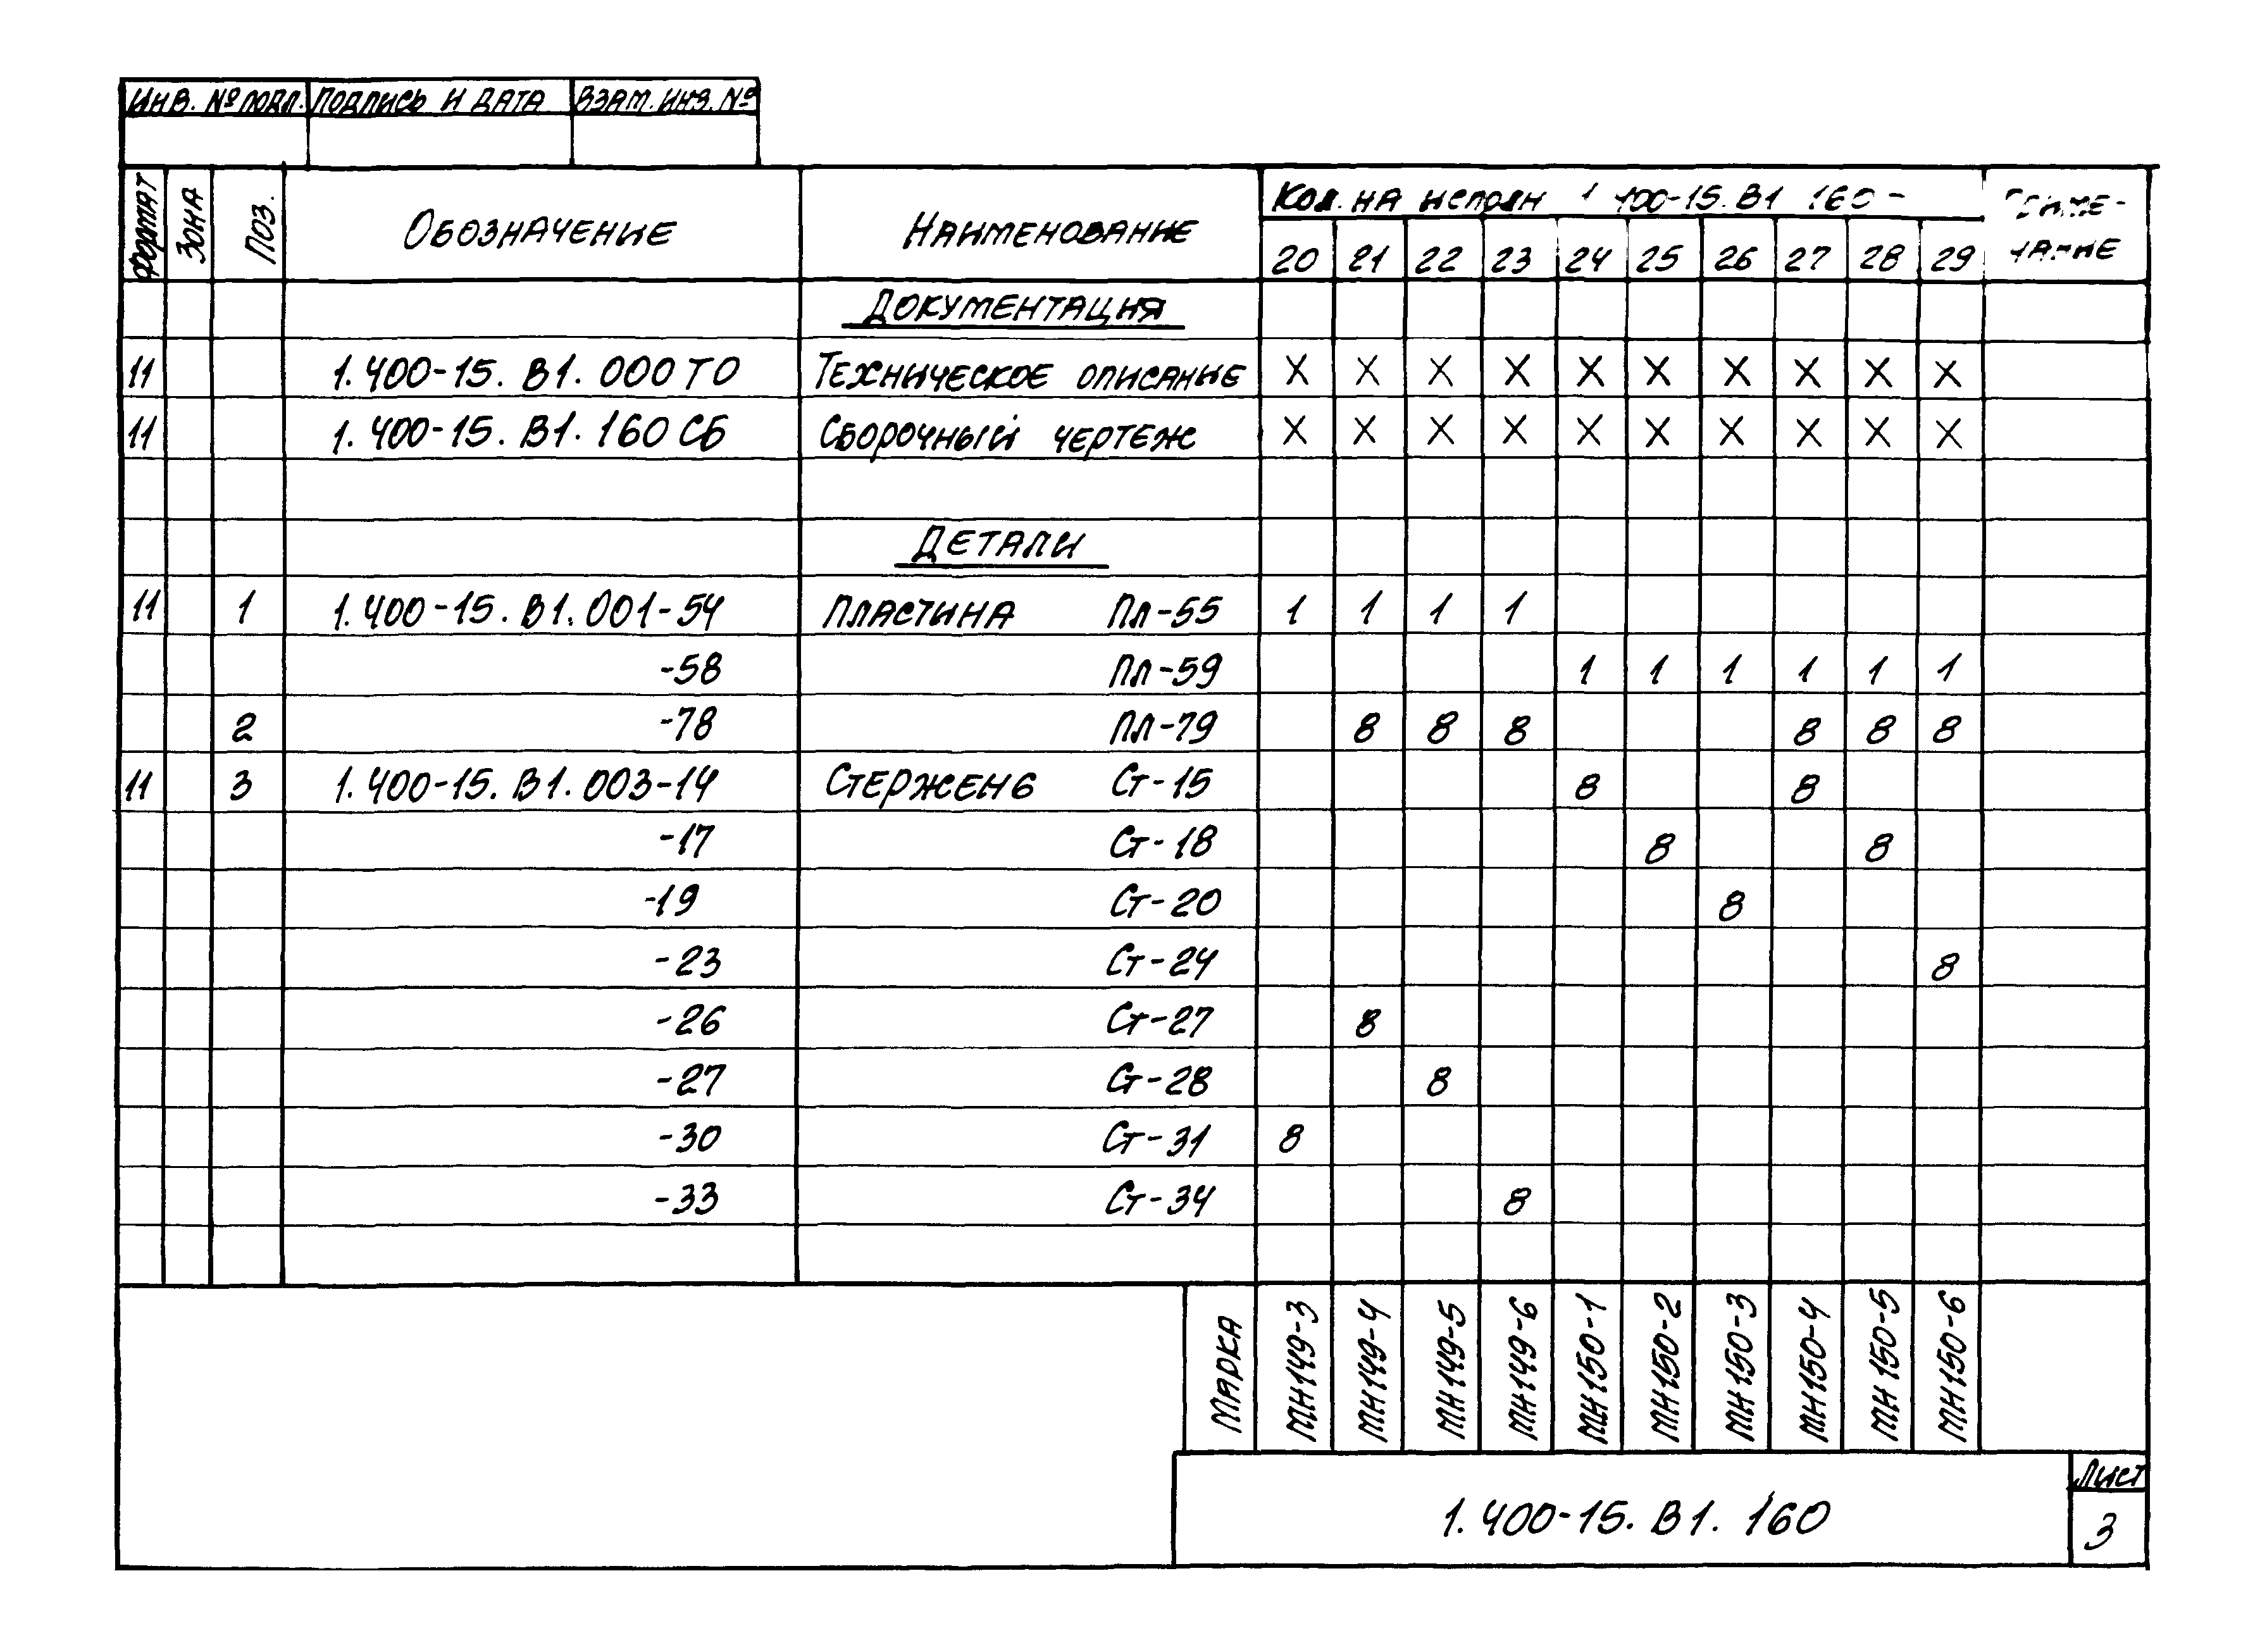 ИНВ. № ПОДЛ. ПОДПИСЬ И ДАТА ВЗАМ. ИНВ. №
ФОРМАТ ЗОНА ПОЗ. ОБОЗНАЧЕНИЕ НАИМЕНОВАНИЕ Кол. НА ИСПОЛН 1 400-15. В1 160 -
20 21 22 23 24 25 26 27 28 29
ДОКУМЕНТАЦИЯ
11 1.400-15. В1. 000 ТО ТЕХНИЧЕСКОЕ ОПИСАНИЕ X X X X X X X X X X
11 1.400-15. В1. 160 СБ СБОРОЧНЫЙ ЧЕРТЕЖ X X X X X X X X X X
ДЕТАЛИ
11 1 1.400-15. В1. 001-54 ПЛАСТИНА Пл-55 1 1 1 1
-58 Пл-59 1 1 1 1 1 1
2 -78 Пл-79 8 8 8 8 8 8
11 3 1.400-15. В1. 003-14 СТЕРЖЕНЬ Ст-15 8 8
-17 Ст-18 8 8
-19 Ст-20 8
-23 Ст-24 8
-26 Ст-27 8
-27 Ст-28 8
-30 Ст-31 8
-33 Ст-34 8
МАРКА МН149-3 МН149-4 МН149-5 МН149-6 МН150-1 МН150-2 МН150-3 МН150-4 МН150-5 МН150-6
1.400-15. В1. 160
Лист
3